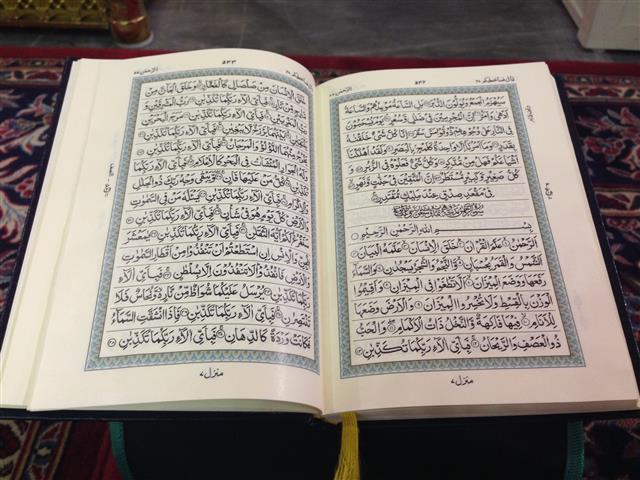 قال فما خطبكم ٢٧
٥٣٢
سَيُهْزَمُ الْجَمْعُ وَيُوَلُّوْنَ الدُّبُرَ بَلِ السَّاعَةُ مَوْعِدُهُمْ وَالسَّاعَةُ
اَدْهٰى وَاَمَرُّ اِنَّ الْمُجْرِمِيْنَ فِيْ ضَلٰلٍ وَّسُعُرٍ يَوْمَ يُسْحَبُوْنَ
فِي النَّارِ عَلٰى وُجُوْهِهِمْ ذُوْقُوْا مَسَّ سَقَرَ اِنَّا كُلَّ شَيْءٍ خَلَقْنٰهُ
بِقَدَرٍ وَمَآ اَمْرُنَآ اِلَّا وَاحِدَةٌ كَلَمْحٍۢ بِالْبَصَرِ وَلَقَدْ اَهْلَكْنَآ
اَشْيَاعَكُمْ فَهَلْ مِنْ مُّدَّكِرٍ وَكُلُّ شَيْءٍ فَعَلُوْهُ فِي الزُّبُرِ وَ
كُلُّ صَغِيْرٍ وَّكَبِيْرٍ مُّسْتَطَرٌ اِنَّ الْمُتَّقِيْنَ فِيْ جَنّٰتٍ وَّنَهَرٍ
فِيْ مَقْعَدِ صِدْقٍ عِنْدَ مَلِيْكٍ مُّقْتَدِرٍ
بِسْمِ اللهِ الرَّحْمٰنِ الرَّحِيْمِ
اَلرَّحْمٰنُ عَلَّمَ الْقُرْاٰنَ خَلَقَ الْاِنْسَانَ عَلَّمَهُ الْبَيَانَ
اَلشَّمْسُ وَالْقَمَرُ بِحُسْبَانٍ وَّالنَّجْمُ وَالشَّجَرُ يَسْجُدٰنِ وَالسَّمَآءَ
رَفَعَهَا وَوَضَعَ الْمِيْزَانَ اَلَّا تَطْغَوْا فِي الْمِيْزَانِ وَاَقِيْمُوا
الْوَزْنَ بِالْقِسْطِ وَلَا تُخْسِرُوا الْمِيْزَانَ وَالْاَرْضَ وَضَعَهَا
لِلْاَنَامِ فِيْهَا فَاكِهَةٌ وَّالنَّخْلُ ذَاتُ الْاَكْمَامِ وَالْحَبُّ
ذُو الْعَصْفِ وَالرَّيْحَانُ فَبِاَيِّ اٰلَآءِ رَبِّكُمَا تُكَذِّبٰنِ
منزل ٧
الرحمن ٥٥
٥٣٣
خَلَقَ الْاِنْسَانَ مِنْ صَلْصَالٍ كَالْفَخَّارِ وَخَلَقَ الْجَآنَّ مِنْ
مَّارِجٍ مِّنْ نَّارٍ فَبِاَيِّ اٰلَآءِ رَبِّكُمَا تُكَذِّبٰنِ رَبُّ الْمَشْرِقَيْنِ
وَرَبُّ الْمَغْرِبَيْنِ فَبِاَيِّ اٰلَآءِ رَبِّكُمَا تُكَذِّبٰنِ مَرَجَ الْبَحْرَيْنِ
يَلْتَقِيٰنِ بَيْنَهُمَا بَرْزَخٌ لَّا يَبْغِيٰنِ فَبِاَيِّ اٰلَآءِ رَبِّكُمَا تُكَذِّبٰنِ
يَخْرُجُ مِنْهُمَا اللُّؤْلُؤُ وَالْمَرْجَانُ فَبِاَيِّ اٰلَآءِ رَبِّكُمَا تُكَذِّبٰنِ
وَلَهُ الْجَوَارِ الْمُنْشَئٰتُ فِي الْبَحْرِ كَالْاَعْلَامِ فَبِاَيِّ اٰلَآءِ رَبِّكُمَا
تُكَذِّبٰنِ كُلُّ مَنْ عَلَيْهَا فَانٍ وَّيَبْقٰى وَجْهُ رَبِّكَ ذُو الْجَلٰلِ
وَالْاِكْرَامِ فَبِاَيِّ اٰلَآءِ رَبِّكُمَا تُكَذِّبٰنِ يَسْـَٔلُهٗ مَنْ فِي السَّمٰوٰتِ
وَالْاَرْضِ كُلَّ يَوْمٍ هُوَ فِيْ شَاْنٍ فَبِاَيِّ اٰلَآءِ رَبِّكُمَا تُكَذِّبٰنِ
سَنَفْرُغُ لَكُمْ اَيُّهَ الثَّقَلٰنِ فَبِاَيِّ اٰلَآءِ رَبِّكُمَا تُكَذِّبٰنِ يٰمَعْشَرَ
الْجِنِّ وَالْاِنْسِ اِنِ اسْتَطَعْتُمْ اَنْ تَنْفُذُوْا مِنْ اَقْطَارِ السَّمٰوٰتِ
وَالْاَرْضِ فَانْفُذُوْا لَا تَنْفُذُوْنَ اِلَّا بِسُلْطٰنٍ فَبِاَيِّ اٰلَآءِ
رَبِّكُمَا تُكَذِّبٰنِ يُرْسَلُ عَلَيْكُمَا شُوَاظٌ مِّنْ نَّارٍ وَّنُحَاسٌ فَلَا
تَنْتَصِرٰنِ فَبِاَيِّ اٰلَآءِ رَبِّكُمَا تُكَذِّبٰنِ فَاِذَا انْشَقَّتِ السَّمَآءُ
فَكَانَتْ وَرْدَةً كَالدِّهَانِ فَبِاَيِّ اٰلَآءِ رَبِّكُمَا تُكَذِّبٰنِ
منزل ٧